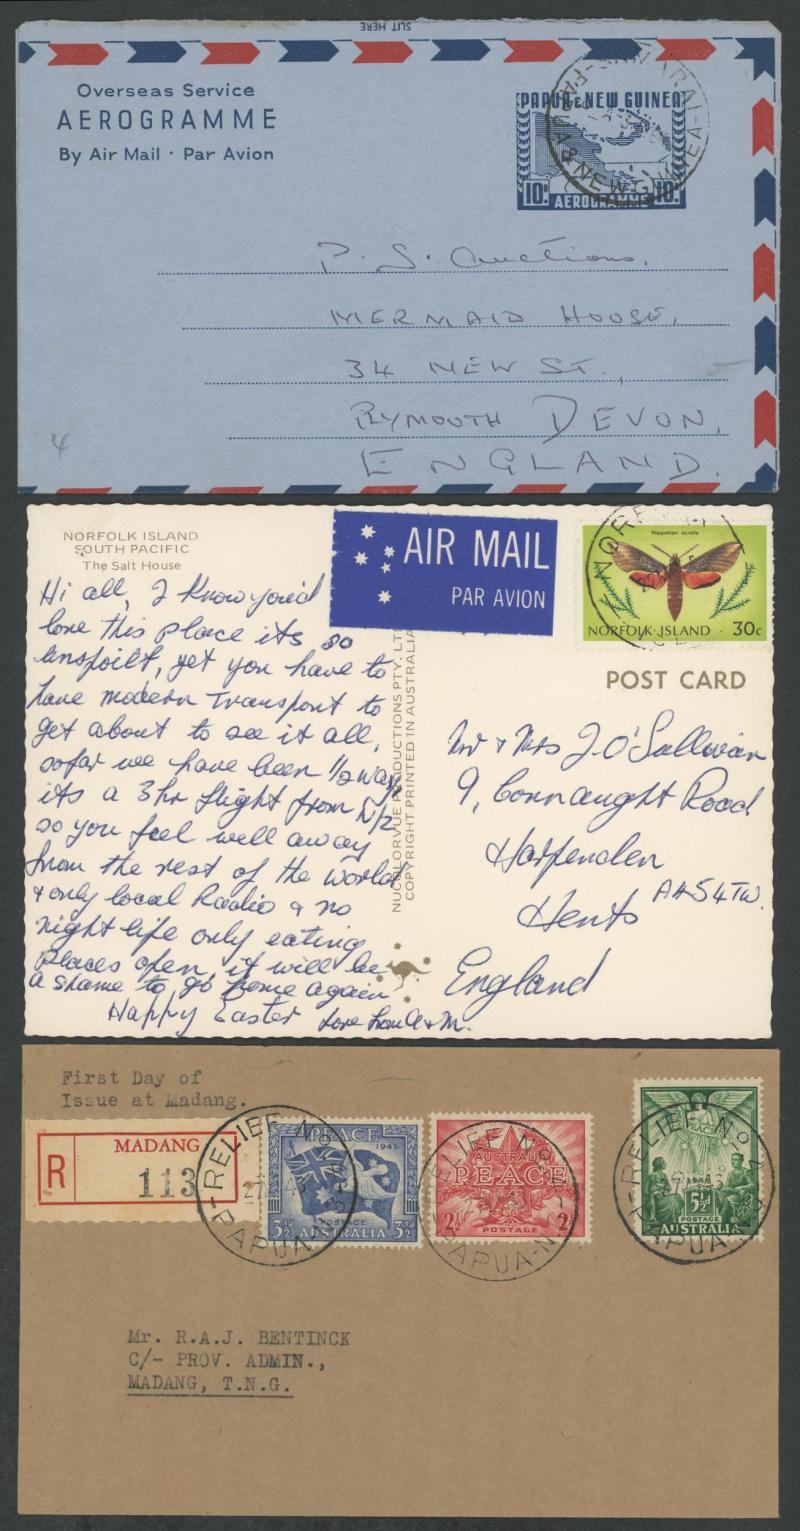 SLIT HERE
Overseas Service
AEROGRAMME
By Air Mail · Par Avion
PAPUA & NEW GUINEA
10D AEROGRAMME 10D
PAPUA & NEW GUINEA
P. S. Auctions,
MERMAID HOUSE,
34 NEW ST.,
PLYMOUTH DEVON,
ENGLAND.
4
NORFOLK ISLAND
SOUTH PACIFIC
The Salt House
AIR MAIL
PAR AVION
NORFOLK·ISLAND · 30c
POST CARD
Hi all, I know you'd
love this place its so
unspoilt, yet you have to
have modern Transport to
get about to see it all,
sofar we have been 1/2 way
its a 3hr flight from N/Z
so you feel well away
from the rest of the world
& only local Radio & no
night life only eating
places open, it will be
a shame to go home again
Happy Easter love from & M.
NUCOLORVUE PRODUCTIONS PTY. LTD
COPYRIGHT. PRINTED IN AUSTRALIA
Mr & Mrs J. O'Sullivan
9, Connaught Road
Harpenden
Herts AL54TW.
England
First Day of
Issue at Madang.
R
MADANG
113
RELIEF No 4
PAPUA-N.G
PEACE
1945
3½D POSTAGE 3½D
AUSTRALIA
RELIEF No
PAPUA-N
AUSTRALIA
PEACE
1945
2½D POSTAGE 2½
RELIEF No 4
PAPUA
PEACE
5½D
POSTAGE
AUSTRALIA
Mr. R.A.J. BENTINCK
C/- PROV. ADMIN.,
MADANG, T.N.G.